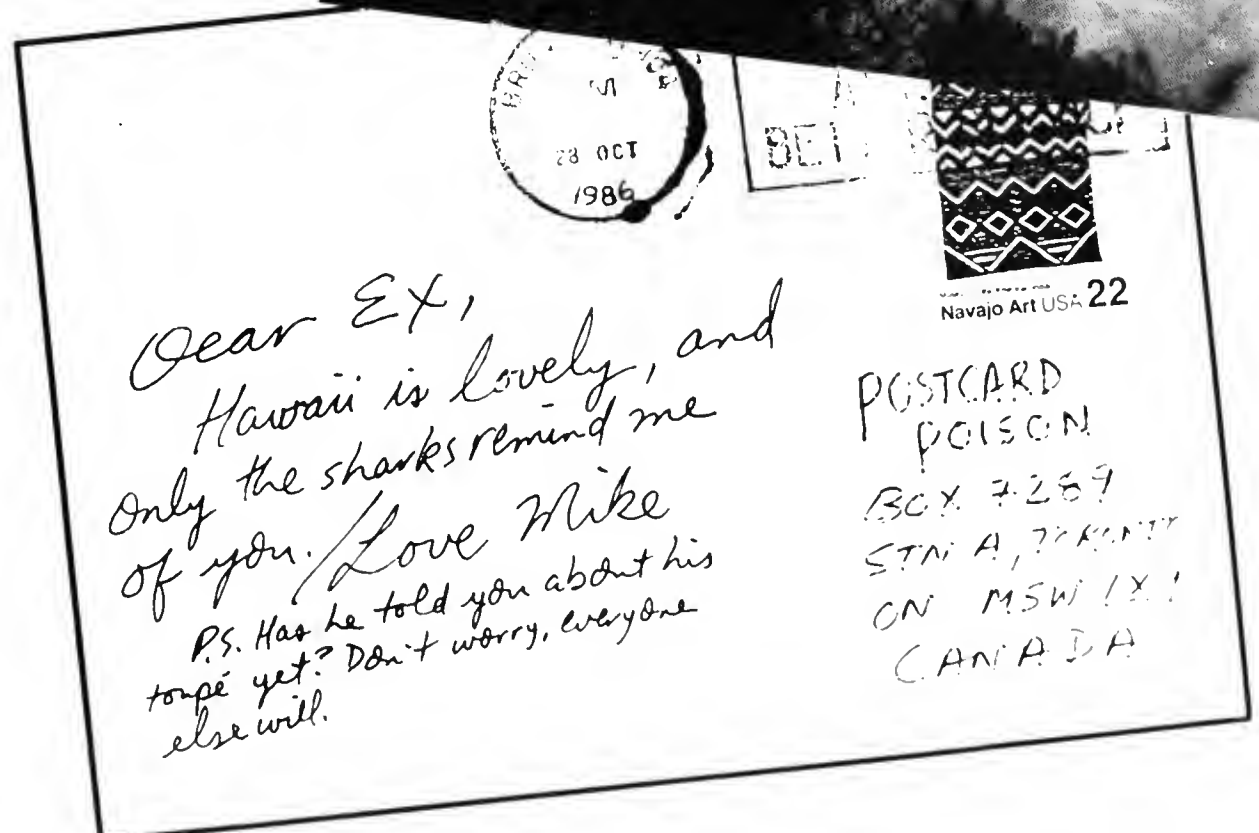 28 OCT
1986
Navajo Art USA 22
Dear Ex,
Hawaii is lovely, and
only the sharks remind me
of you. / Love Mike
P.S. Has he told you about his
toupé yet? Don't worry, everyone
else will.
POSTCARD
POISON
BOX 7289
STN A,
ON M5W 1X
CANADA